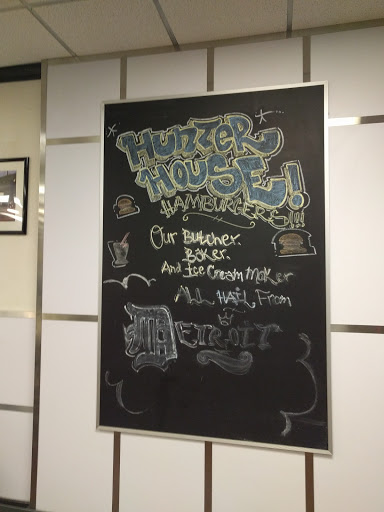 HUNTER
HOUSE!
HAMBURGERS!!!
Our Butcher.
Baker.
And Ice Cream Maker
ALL HAIL From
DETROIT